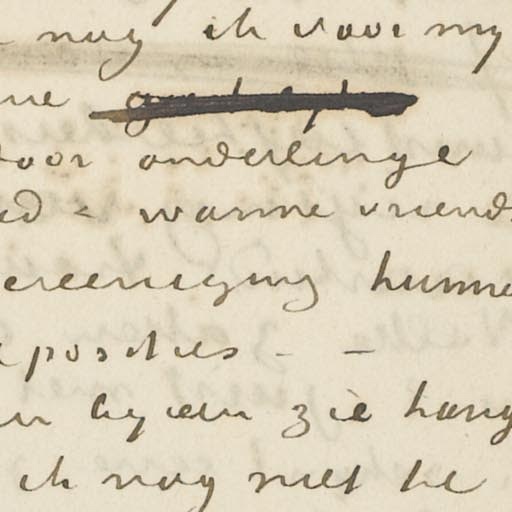 nog ik voor my
ne
door onderlinge
ed - warme vriends
ereeniging hunne
posities - -
byeen zie hang
ik nog niet te